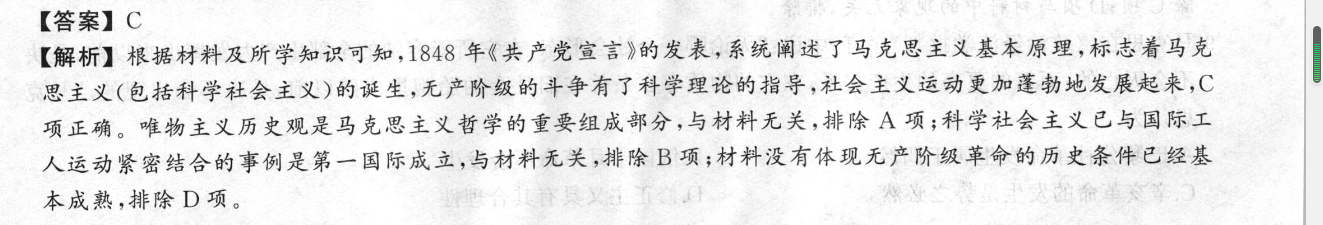 【答案】C
【解析】根据材料及所学知识可知,1848 年《共产党宣言》的发表,系统阐述了马克思主义基本原理,标志着马克
思主义(包括科学社会主义)的诞生,无产阶级的斗争有了科学理论的指导,社会主义运动更加蓬勃地发展起来,C
项正确。唯物主义历史观是马克思主义哲学的重要组成部分,与材料无关,排除 A 项;科学社会主义已与国际工
人运动紧密结合的事例是第一国际成立,与材料无关,排除 B 项;材料没有体现无产阶级革命的历史条件已经基
本成熟,排除 D 项。